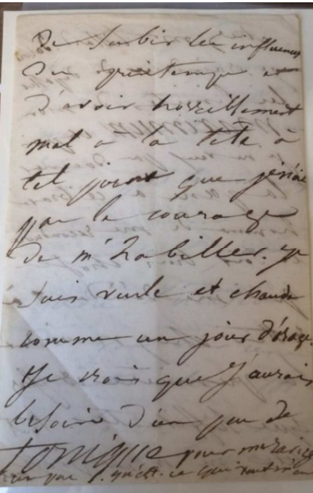 de subir les influences
du printemps et
d'avoir horriblement
mal à la tête à
tel point que je n'ai
pas le courage
de m'habiller. je
suis rude et chaude
comme un jour d'orage.
Je crois que j'aurais
besoin d'un peu de
tonique pour